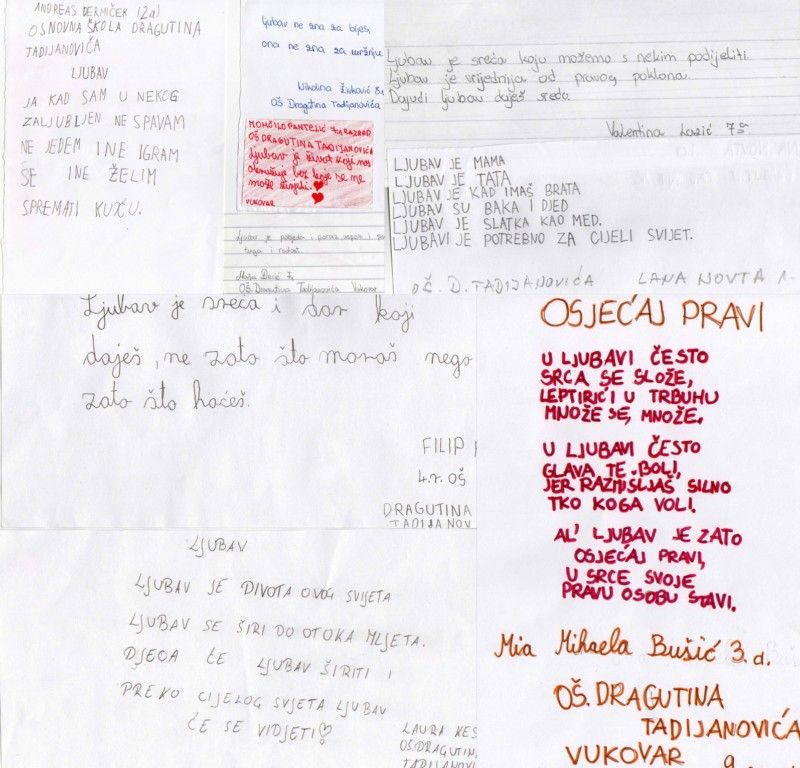 ANDREAS DERMIČEK (2a)
OSNOVNA ŠKOLA DRAGUTINA
TADIJANOVIĆA
LJUBAV
JA KAD SAM U NEKOG
ZALJUBLJEN NE SPAVAM
NE JEDEM I NE IGRAM
SE I NE ŽELIM
SPREMATI KUĆU.
ljubav ne zna za bijes,
ona ne zna za mržnju
Nikolina Živković 8a
OŠ Dragutina Tadijanovića
MOMČILO PANTELIĆ RAZRED
OŠ DRAGUTINA TADIJANOVIĆA
ljubav je život koji nas
okružuje bez koje se ne
može živjeti.
VUKOVAR
Ljubav je pobjeda i poraz,
tuga i radost.
OŠ. Dragutina Tadijanovića Vukovar
Ljubav je sreća koju možemo s nekim podijeliti.
Ljubav je vrijednija od pravog poklona.
Dajući ljubav daješ sreću.
Valentina Lazić 7
LJUBAV JE MAMA
LJUBAV JE TATA
LJUBAV JE KAD IMAŠ BRATA
LJUBAV SU BAKA I DJED
LJUBAV JE SLATKA KAO MED.
LJUBAVI JE POTREBNO ZA CIJELI SVIJET.
OŠ. D. TADIJANOVIĆA LANA NOVTA 1-
Ljubav je sreća i dar koji
daješ, ne zato što moraš nego
zato što hoćeš.
FILIP
4.r. OŠ
DRAGUTINA
TADIJANOV
LJUBAV
LJUBAV JE DIVOTA OVOG SVIJETA
LJUBAV SE ŠIRI DO OTOKA MLJETA.
DJECA ĆE LJUBAV ŠIRITI I
PREKO CIJELOG SVJETA LJUBAV
ĆE SE VIDJETI!
LAURA KES
OŠ.DRAGUTIN
TADIJANOVI
OSJEĆAJ PRAVI
U LJUBAVI ČESTO
SRCA SE SLOŽE,
LEPTIRIĆI U TRBUHU
MNOŽE SE, MNOŽE.
U LJUBAVI ČESTO
GLAVA TE BOLI,
JER RAZMIŠLJAŠ SILNO
TKO KOGA VOLI.
AL' LJUBAV JE ZATO
OSJEĆAJ PRAVI,
U SRCE SVOJE
PRAVU OSOBU STAVI.
Mia Mihaela Bušić 3.d.
OŠ. DRAGUTINA
TADIJANOVIĆA
VUKOVAR